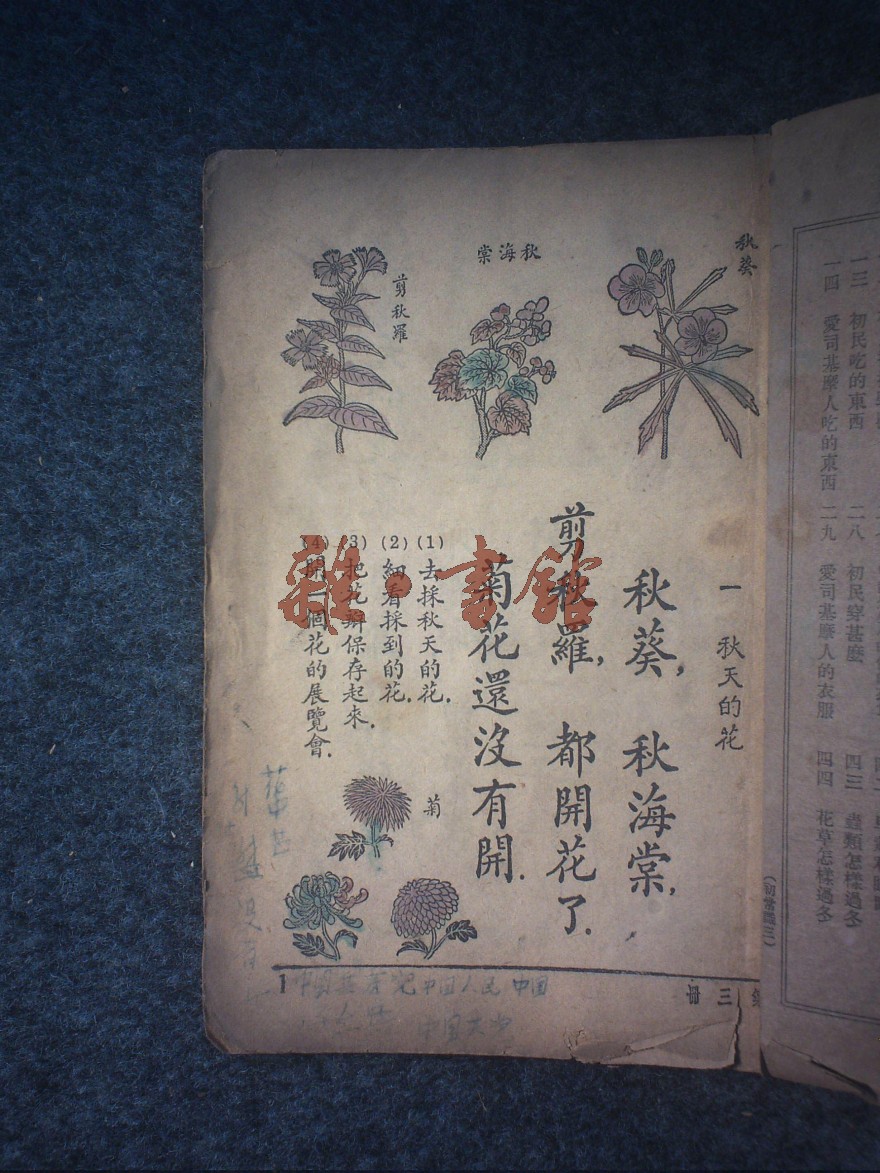 秋葵
秋海棠
剪秋羅
一 秋天的花
秋葵，秋海棠，
剪秋羅，都開花了．
菊花還沒有開．
(1) 去採秋天的花．
(2) 細看採到的花．
(3) 把花瓣保存起來．
(4) 開一個花的展覽會．
菊
1
三冊
中国人民 中国
雜·書館
初民吃的東西 二八 初民穿甚麼 四三 蟲類怎樣過冬
一四 愛司基摩人吃的東西 二九 愛司基摩人的衣服 四四 花草怎樣過冬
(初常識三)